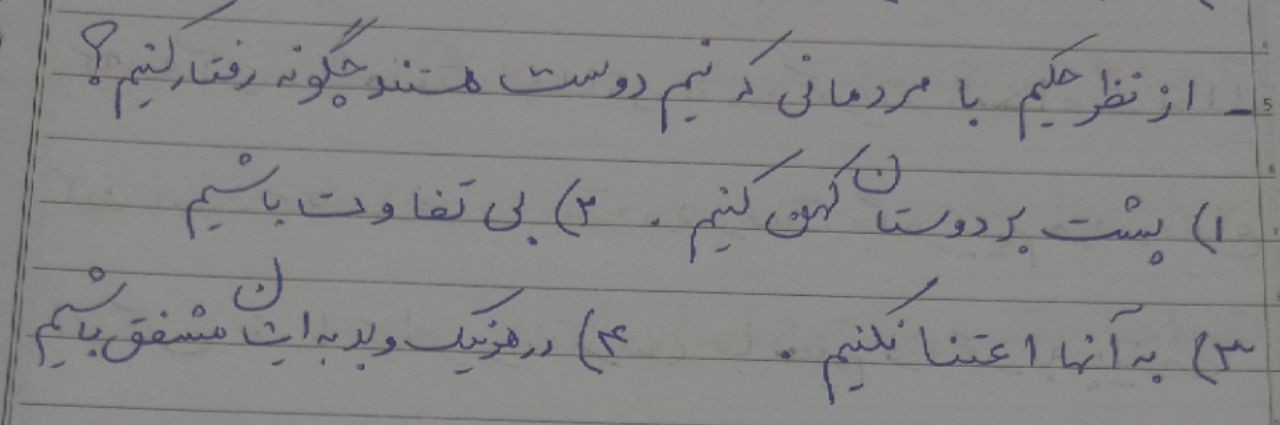 - از نظر حکیم با مردمانی که نیم دوست هستند چگونه رفتار کنیم؟
۱) پشت بر دوستان کهن کنیم. ۲) بی تفاوت باشیم
۳) به آنها اعتنا نکنیم. ۴) در هر نیک و بد به ایشان مشفق باشیم